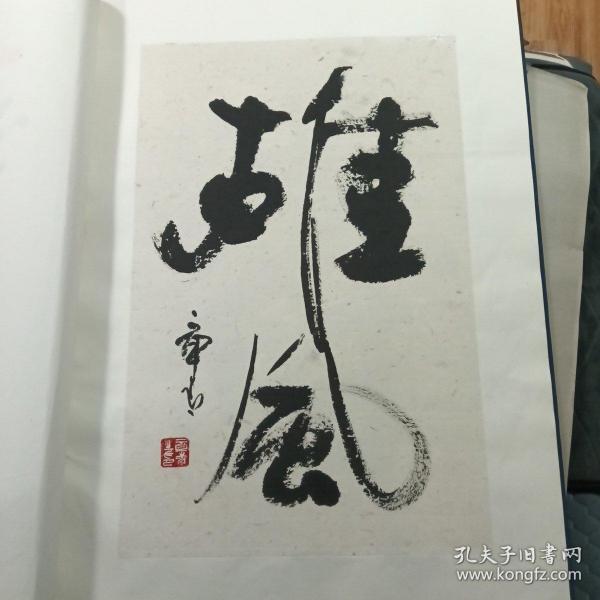 雄
风
孔夫子旧書网
www.kongfz.com